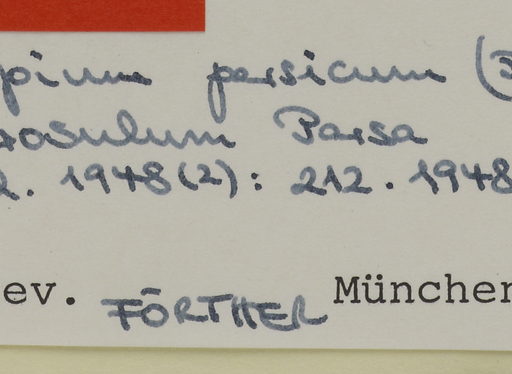 pinum persicum (B
osulum Parsa
2. 1948(2): 212. 1948
ev. FÖRTHER München